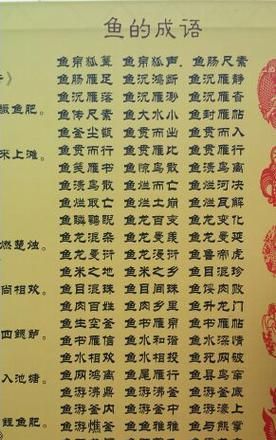 鱼的成语
鱼帛狐篝 鱼帛狐声 鱼肠尺素
鱼肠雁足 鱼沉鸿断 鱼沉雁静
鱼沉雁落 鱼沉雁渺 鱼沉雁杳
鱼传尺素 鱼大水小 鱼封雁帖
鱼釜尘甑 鱼贯而出 鱼贯而入
鱼贯而行 鱼贯雁比 鱼贯雁行
鱼笺雁书 鱼惊鸟散 鱼溃鸟离
鱼溃鸟散 鱼烂而亡 鱼烂河决
鱼烂取亡 鱼烂土崩 鱼烂瓦解
鱼龙百变 鱼龙变化
鱼龙混杂 鱼龙曼羡 鱼龙曼延
鱼龙曼衍 鱼龙漫衍 鱼鲁帝虎
鱼米之地 鱼米之乡 鱼目混珍
鱼目混珠 鱼目间珠 鱼馁肉败
鱼肉百姓 鱼肉乡里 鱼升龙门
鱼生空釜 鱼书雁帛 鱼书雁帖
鱼书雁信 鱼水和谐 鱼水深情
鱼水相欢 鱼水相投 鱼死网破
鱼网鸿离 鱼尾雁行 鱼县鸟窜
鱼游沸鼎 鱼游沸釜 鱼游釜底
鱼游釜内 鱼游釜中 鱼游濠上
鱼鱼雅雅 鱼与熊掌
》
鱼肥。
米上滩。
燃楚烛。
尚相欢。
四鳃鲈。
入池塘。
鱼肥。